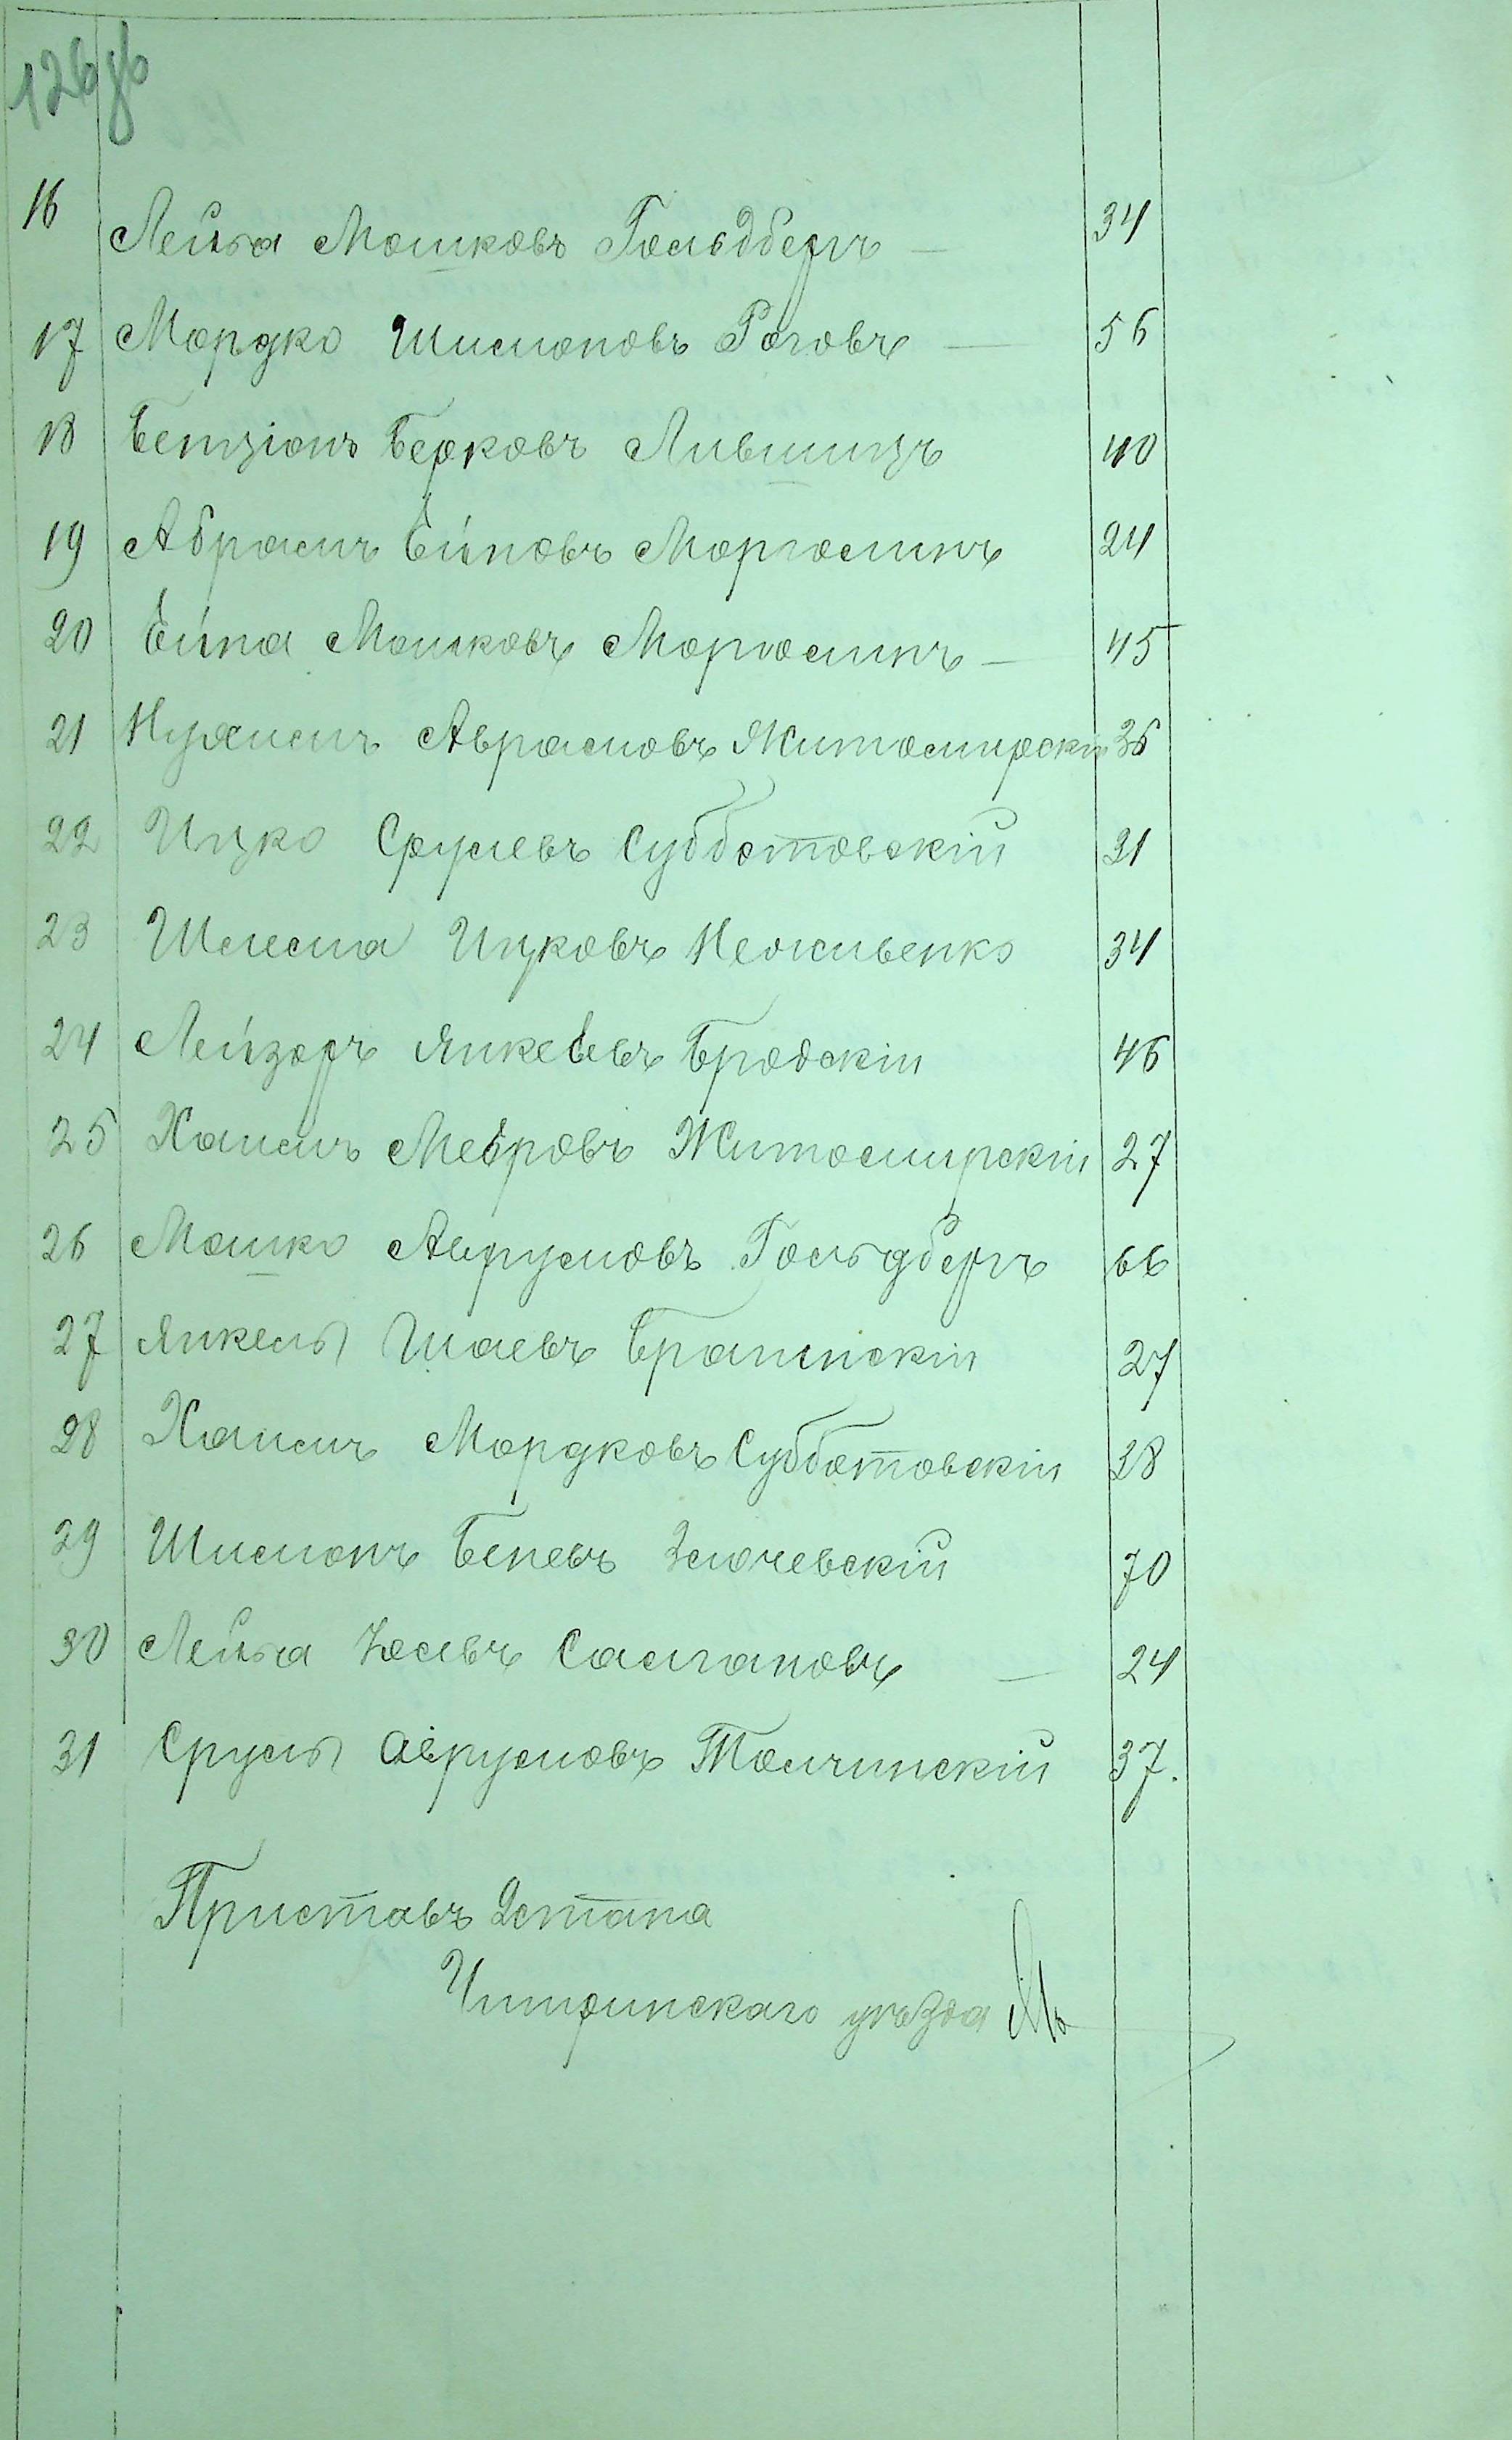 126 об
16 Лейба Мошковъ Гольдбергъ — 34
17 Мордко Шимоновъ Роговъ — 56
18 Бенціонъ Берковъ Лившицъ 40
19 Абрамъ Ейновъ Моргосинъ 24
20 Ейна Мошковъ Моргосинъ — 45
21 Нухимъ Аврамовъ Житомирскій 36
22 Ицко Срулевъ Субботовскій 31
23 Шлема Ицковъ Неживенко 34
24 Лейзоръ Янкелевъ Бродскій 46
25 Хаимъ Мееровъ Житомирскій 27
26 Мошко Аврумовъ Гольдбергъ 66
27 Янкель Шаевъ Брагинскій 27
28 Хаимъ Мордковъ Субботовскій 38
29 Шимонъ Беневъ Злочевскій 70
30 Лейба Іосевъ Салгановъ — 24
31 Сруль Аврумовъ Толчинскій 37.
Приставъ 2 стана
Чигиринскаго уѣзда